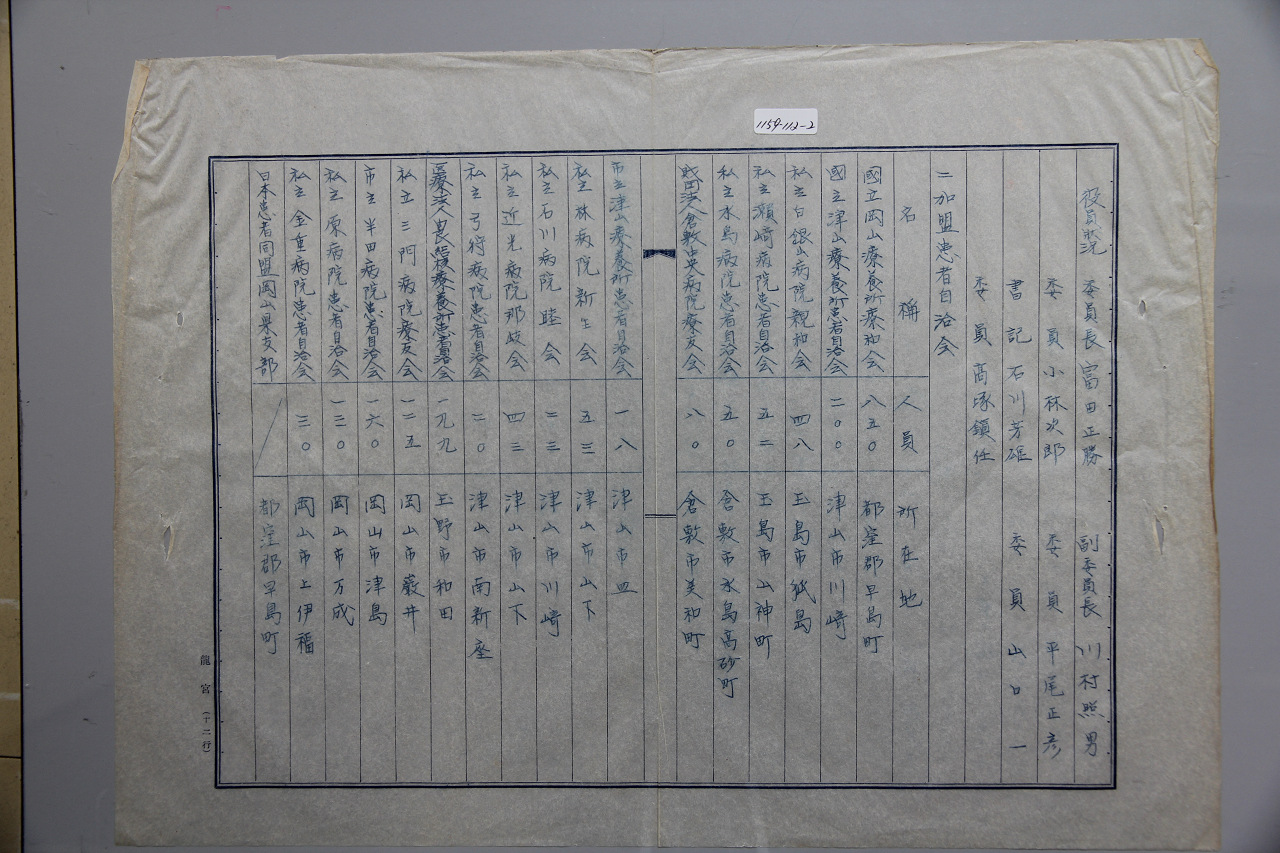 1159-112-2
役員状況 委員長 富田正勝 副委員長 川村照男
委員 小林次郎 委員 平尾正彦
書記 石川芳雄 委員 山口一
委員 高塚鎭任
二加盟患者自治会
名稱 人員 所在地
國立岡山療養所療和会 八五〇 都窪郡早島町
國立津山療養所患者自治会 二〇〇 津山市川崎
私立白銀山病院親和会 四八 玉島市狐島
私立瀬崎病院患者自治会 五二 玉島市山神町
私立水島病院患者自治会 五〇 倉敷市水島高砂町
財団法人倉敷中央病院療友会 八〇 倉敷市美和町
市立津山療養所患者自治会 一八 津山市皿
私立林病院新生会 五三 津山市山下
私立石川病院睦会 二三 津山市川崎
私立近光病院那岐会 四三 津山市山下
私立弓狩病院患者自治会 二〇 津山市南新座
医療法人由良療養所患者自治会 一九九 玉野市和田
私立三門病院療友会 一二五 岡山市巌井
市立半田病院患者自治会 一六〇 岡山市津島
私立原病院患者自治会 一三〇 岡山市万成
私立金重病院患者自治会 三〇 岡山市上伊福
日本患者同盟岡山県支部 都窪郡早島町
龍宮(十二行)